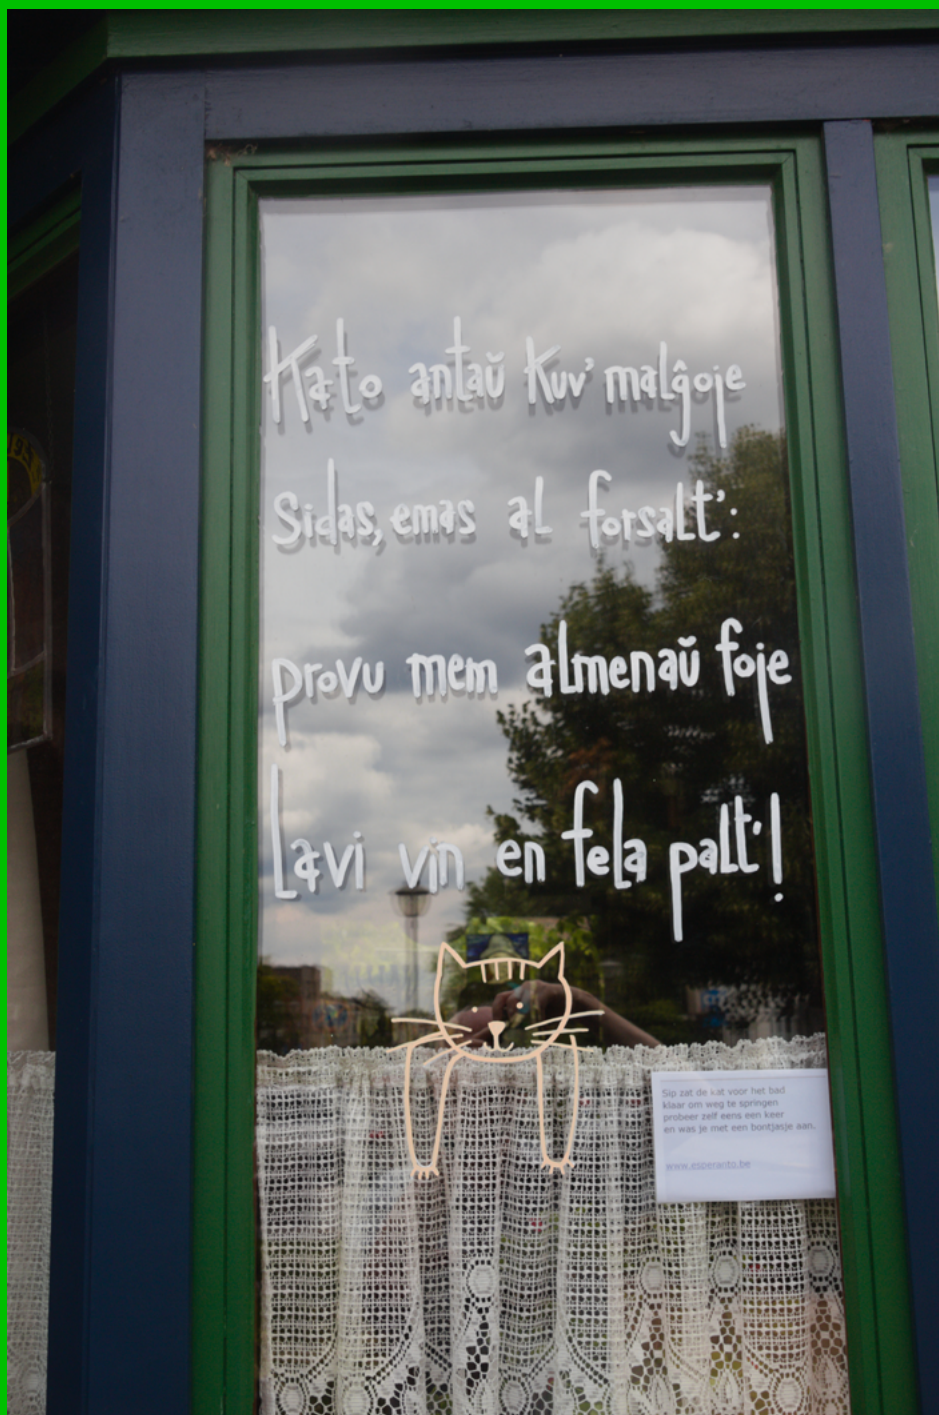 Kato antaŭ kuv' malĝoje
sidas, emas al forsalt':
provu mem almenaŭ foje
lavi vin en fela palt'!
Sip zat de kat voor het bad
klaar om weg te springen
probeer zelf eens een keer
en was je met een bontjasje aan.
www.esperanto.be